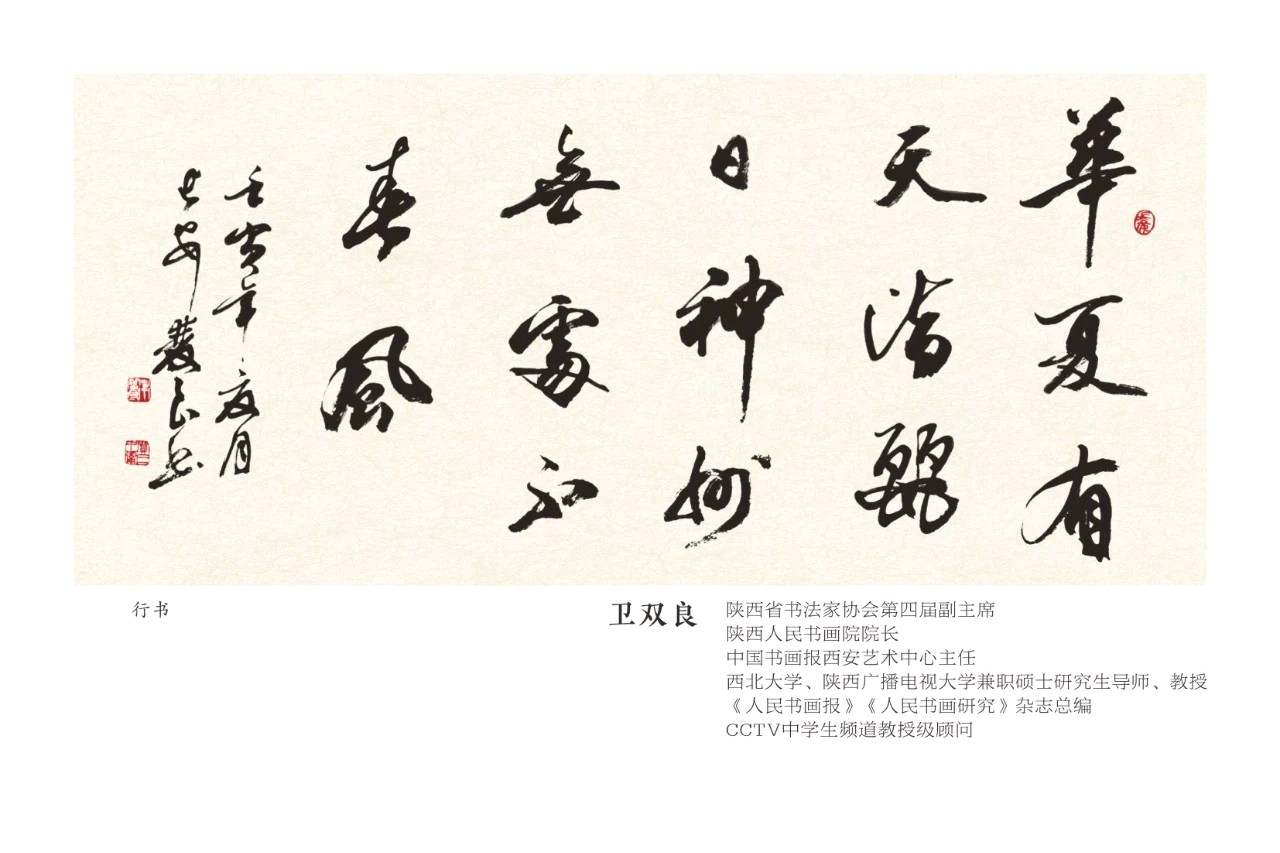 華夏有
天清麗
日神州
無處不
春風
壬寅年夏月
長安雙良書
行书
卫双良
陕西省书法家协会第四届副主席
陕西人民书画院院长
中国书画报西安艺术中心主任
西北大学、陕西广播电视大学兼职硕士研究生导师、教授
《人民书画报》《人民书画研究》杂志总编
CCTV中学生频道教授级顾问